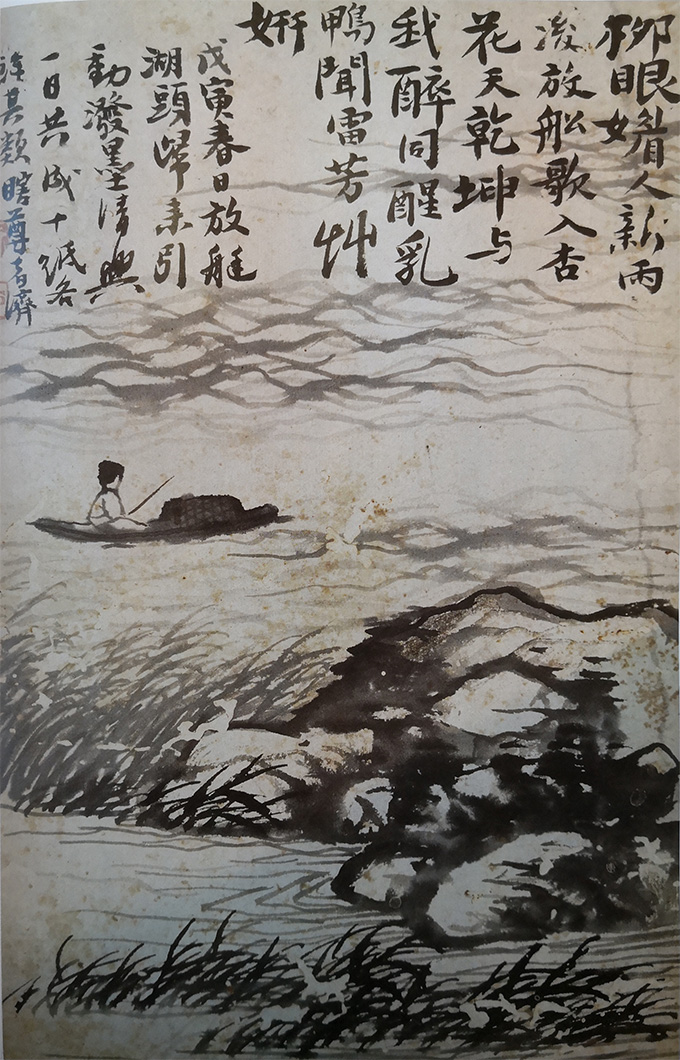 柳眼媚人新雨
後放舩歌入杏
花天乾坤与
我醉同醒乳
鴨聞雷芳艸
妍
戊寅春日放艇
湖頭歸来引
動潑墨清興
一日共成十紙各
其類瞎尊者濟